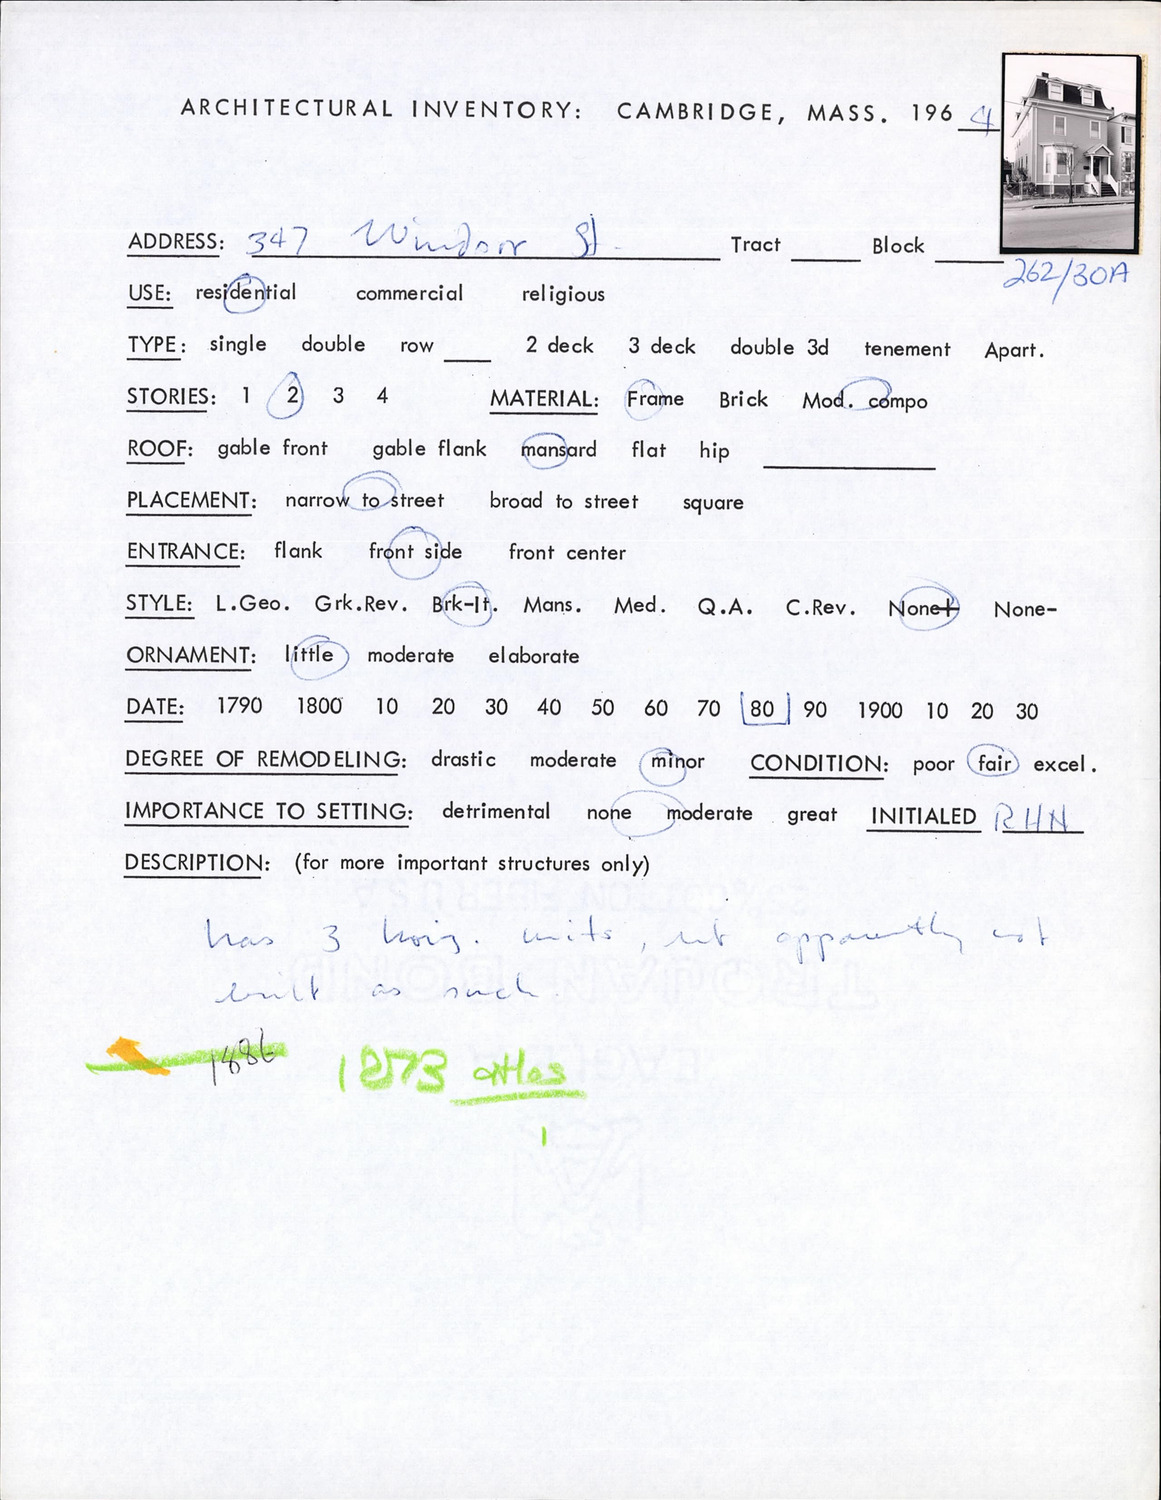 ARCHITECTURAL INVENTORY: CAMBRIDGE, MASS. 1964
ADDRESS: 347 Windsor St. Tract ____ Block ____
262/30A
USE: residential commercial religious
TYPE: single double row ____ 2 deck 3 deck double 3d tenement Apart.
STORIES: 1 2 3 4 MATERIAL: Frame Brick Mod. compo
ROOF: gable front gable flank mansard flat hip ____
PLACEMENT: narrow to street broad to street square
ENTRANCE: flank front side front center
STYLE: L.Geo. Grk.Rev. Brk-It. Mans. Med. Q.A. C.Rev. None+ None-
ORNAMENT: little moderate elaborate
DATE: 1790 1800 10 20 30 40 50 60 70 80 90 1900 10 20 30
DEGREE OF REMODELING: drastic moderate minor CONDITION: poor fair excel.
IMPORTANCE TO SETTING: detrimental none moderate great INITIALED RHN
DESCRIPTION: (for more important structures only)
has 3 horiz. units, but apparently not
built as such.
1886 1873 atlas